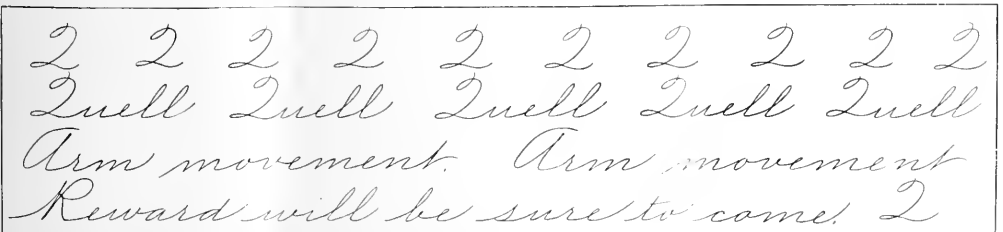 Q Q Q Q Q Q Q Q Q
Quell Quell Quell Quell Quell
Arm movement. Arm movement
Reward will be sure to come. Q